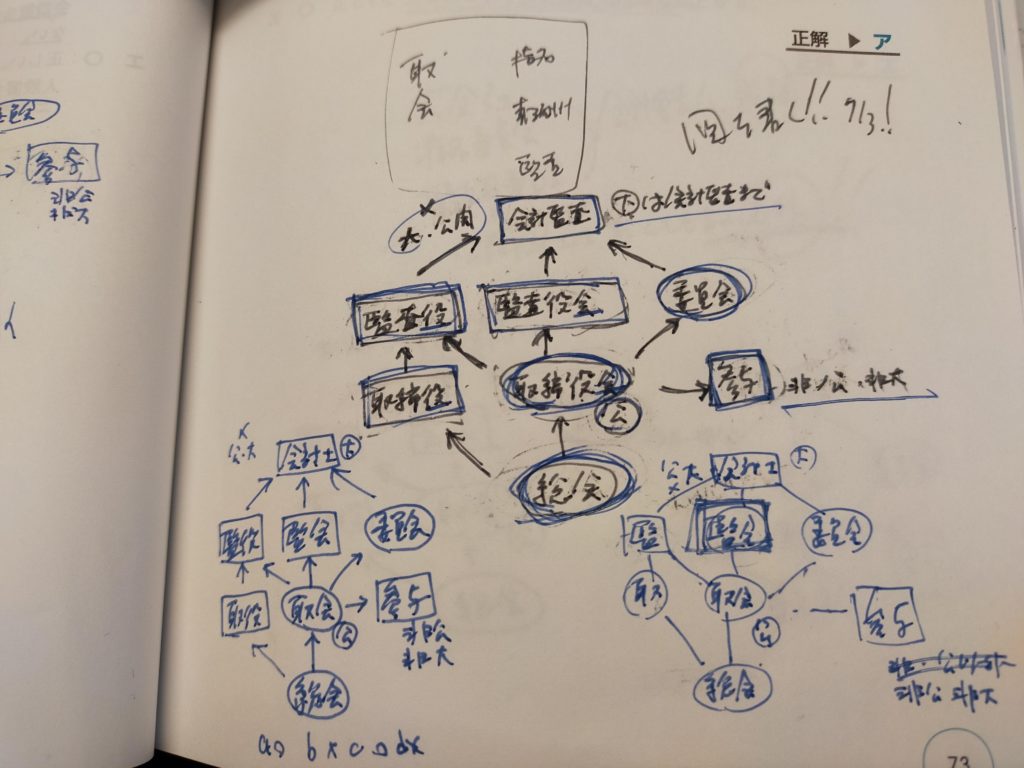 正解 ▶ ア
取
会
指名
監査
図を書く!! 9/3!
会計監査
大は会計監査まで
大・公開
×
監査役
監査役会
委員会
取締役
取締役会
公
参与
非公・非大
総会
×
公大
会計士
大
監役
監会
委員会
取役
取会
公
参与
非公
非大
総会
公大
×
会計士
大
監
監会
委員会
取
取会
公
参与
非公 非大
総会
a○ b× c○ d×
委員会
参与
非公
非大
73